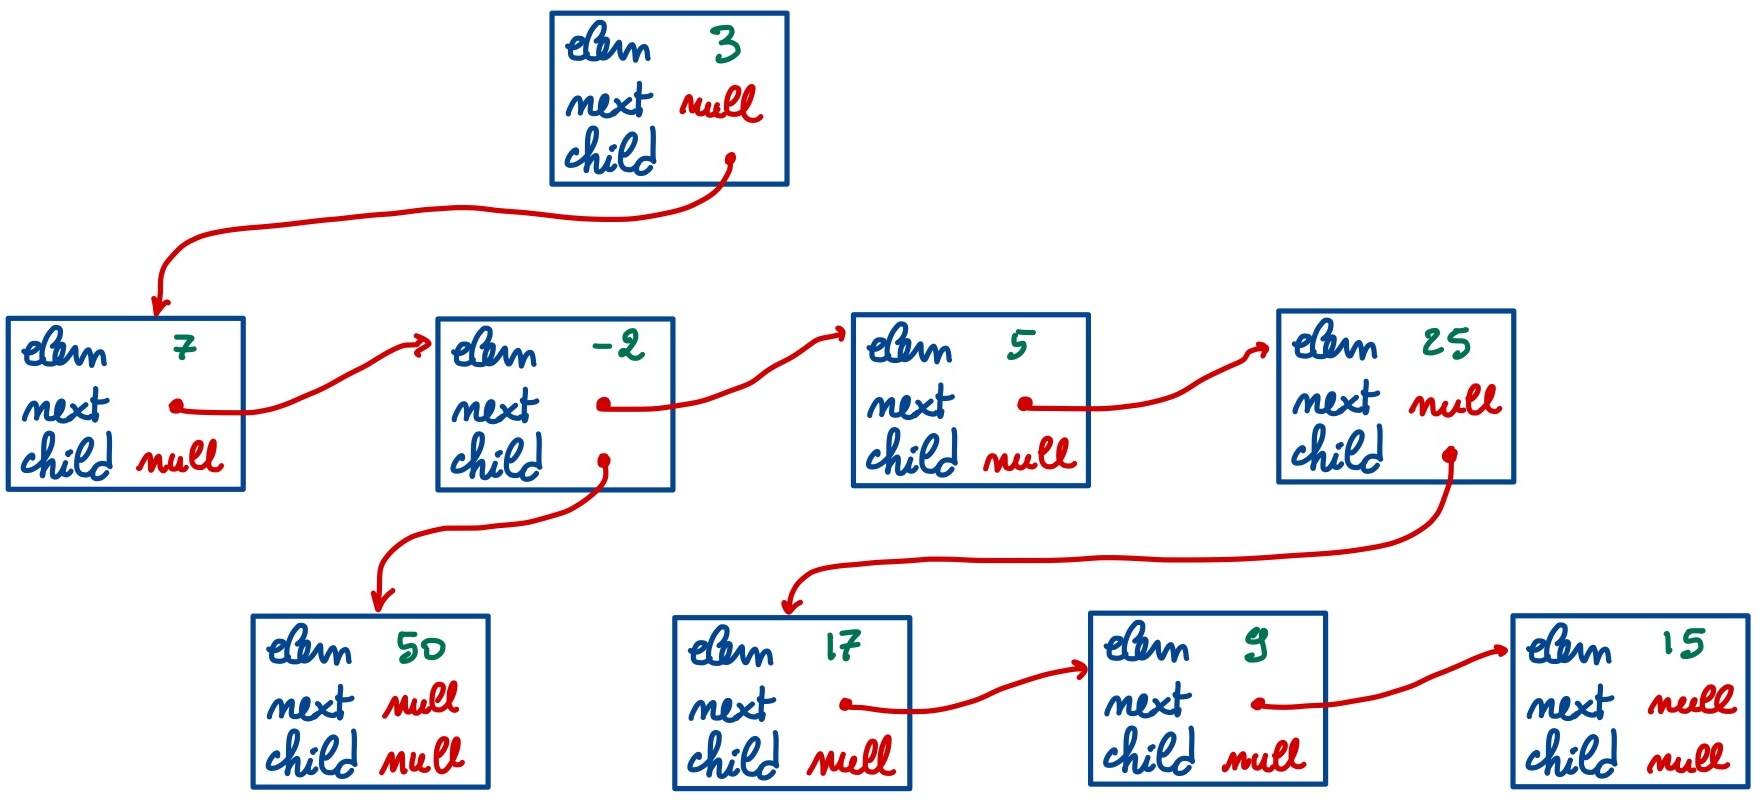 elem 3
next null
child
elem 7
next
child null
elem -2
next
child
elem 5
next
child null
elem 25
next null
child
elem 50
next null
child null
elem 17
next
child null
elem 9
next
child null
elem 15
next null
child null